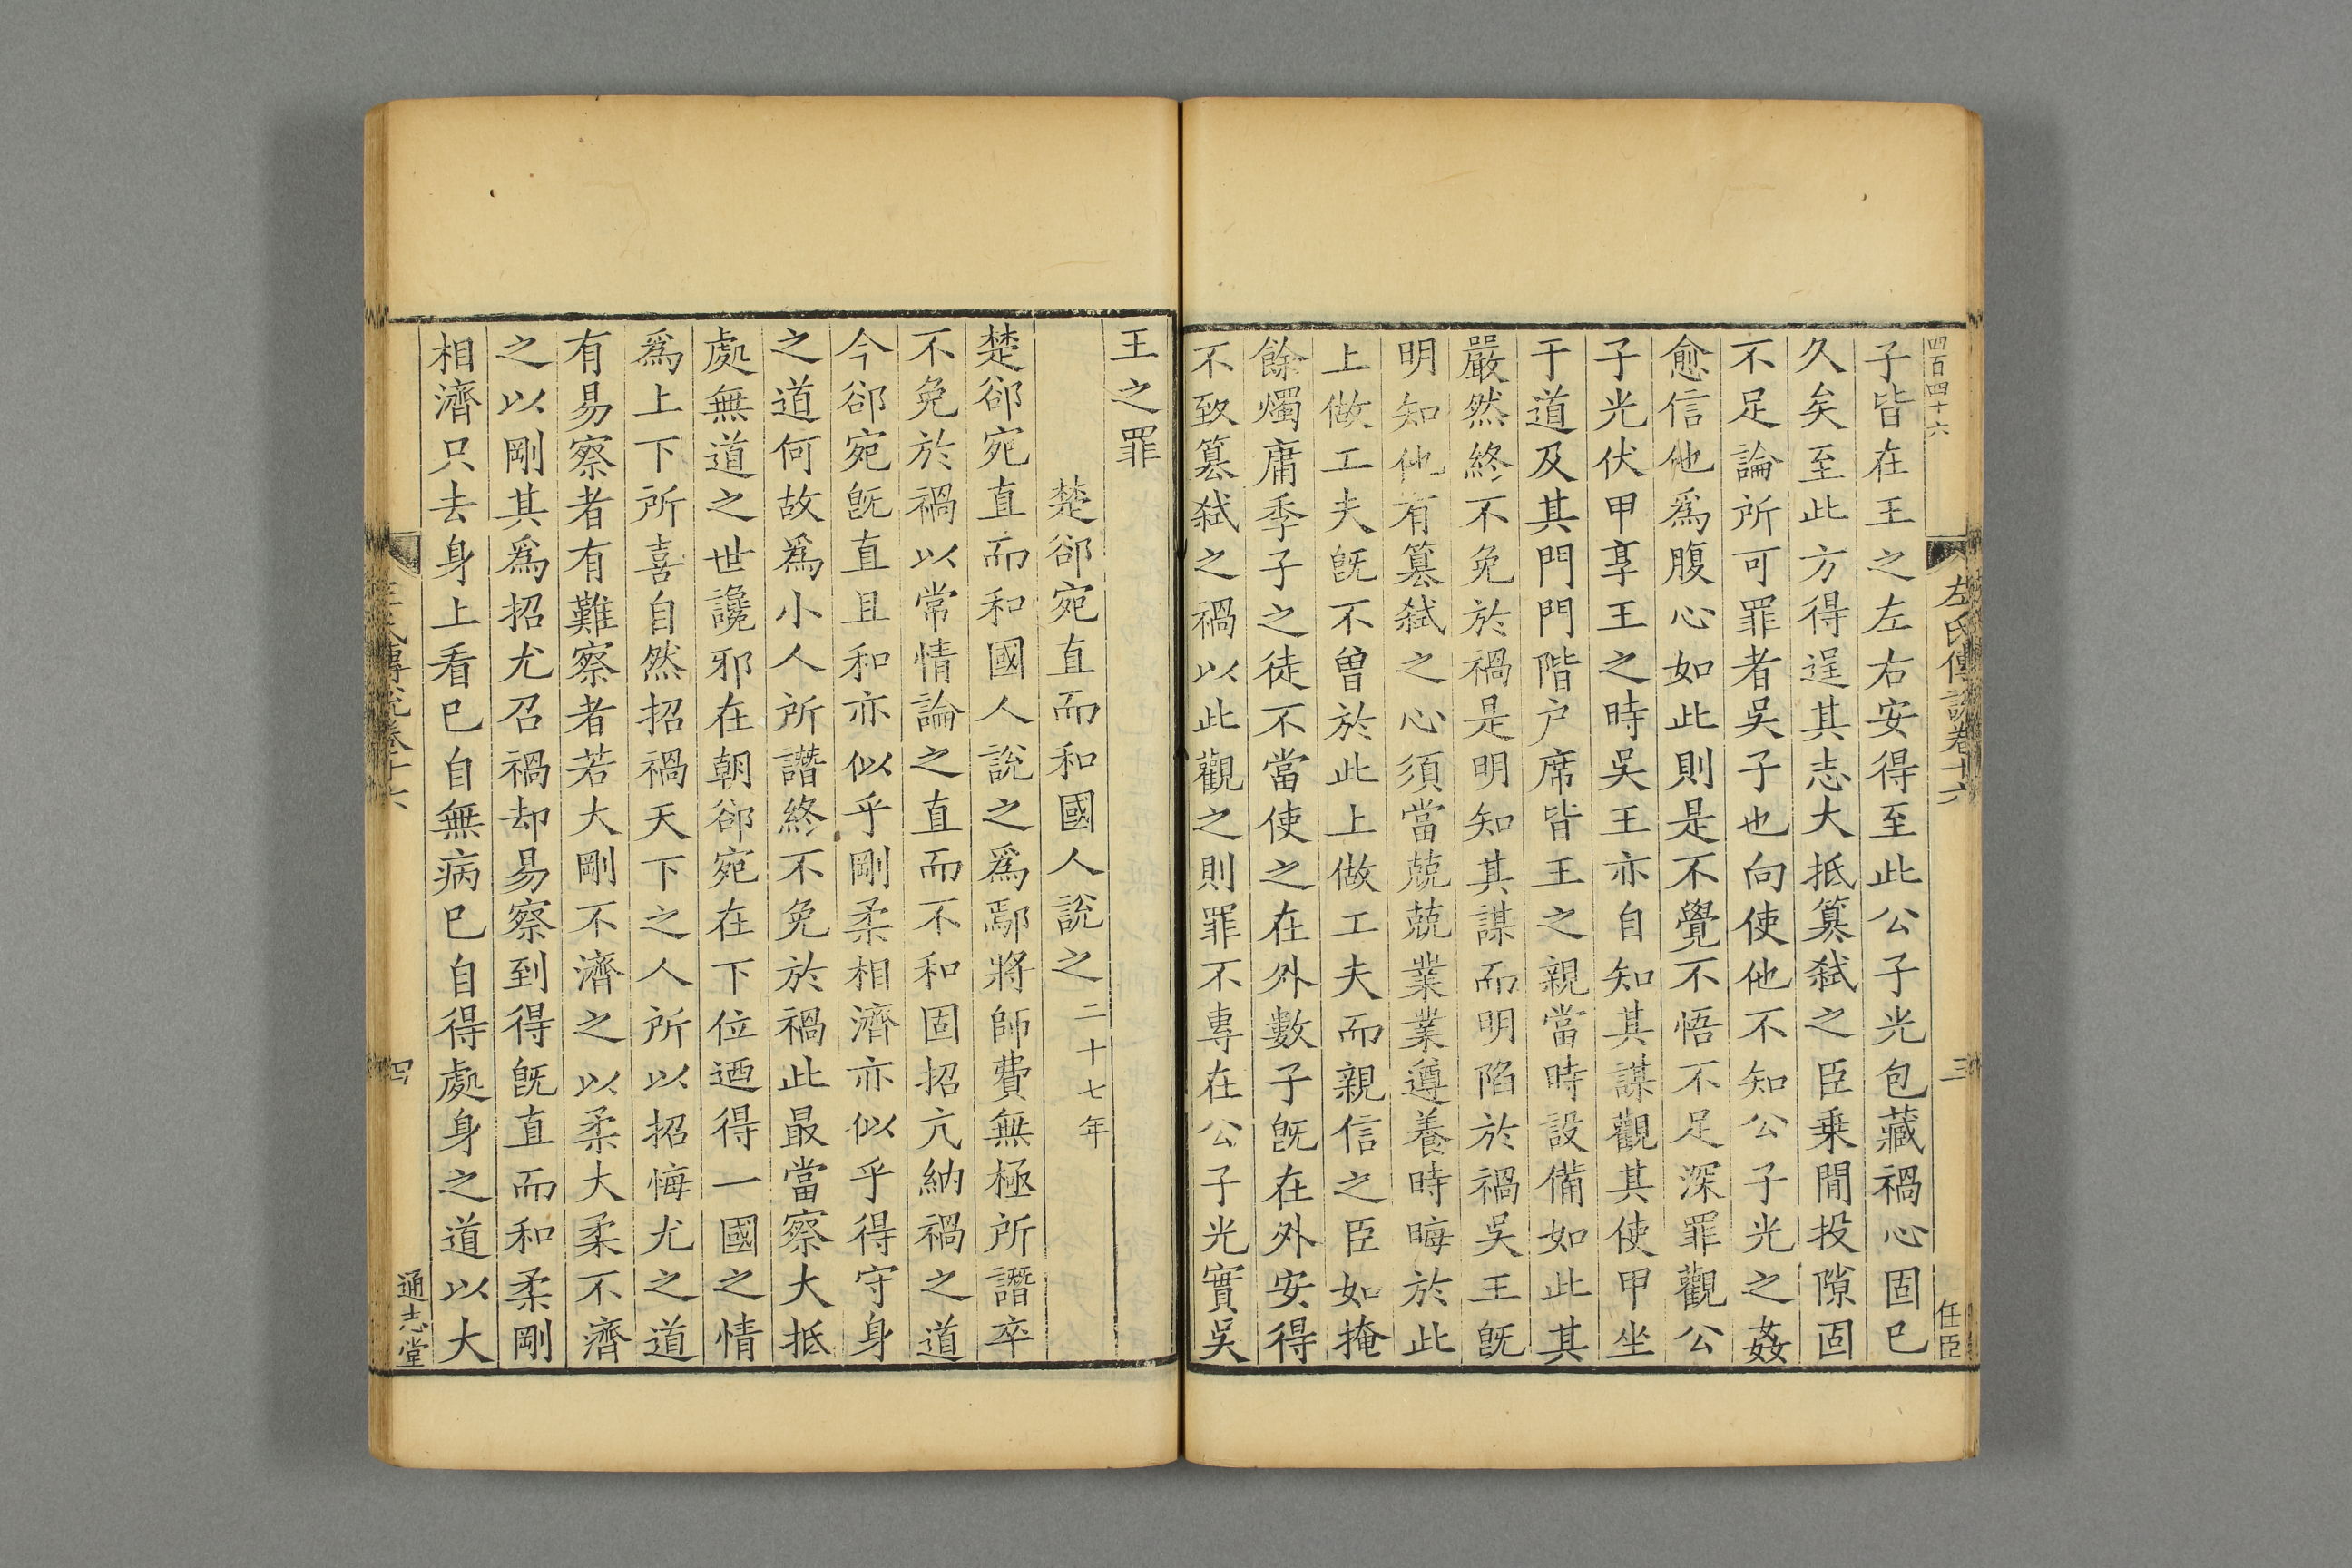 四百四十六
左氏傳說卷十六
三
任臣
子皆在王之左右安得至此公子光包藏禍心固已
久矣至此方得逞其志大抵簒弑之臣乗間投隙固
不足論所可罪者吳子也向使他不知公子光之姦
愈信他爲腹心如此則是不覺不悟不足深罪觀公
子光伏甲享王之時吳王亦自知其謀觀其使甲坐
于道及其門門階户席皆王之親當時設備如此其
嚴然終不免於禍是明知其謀而明陷於禍吳王旣
明知他有簒弑之心須當兢兢業業遵養時晦於此
上做工夫旣不曾於此上做工夫而親信之臣如掩
餘燭庸季子之徒不當使之在外數子旣在外安得
不致簒弑之禍以此觀之則罪不專在公子光實吳
王之罪
楚郤宛直而和國人說之二十七年
楚郤宛直而和國人說之爲鄢將師費無極所譖卒
不免於禍以常情論之直而不和固招亢納禍之道
今郤宛旣直且和亦似乎剛柔相濟亦似乎得守身
之道何故爲小人所譖終不免於禍此最當察大抵
處無道之世讒邪在朝郤宛在下位迺得一國之情
爲上下所喜自然招禍天下之人所以招悔尤之道
有易察者有難察者若大剛不濟之以柔大柔不濟
之以剛其爲招尤召禍却易察到得旣直而和柔剛
相濟只去身上看已自無病已自得處身之道以大
左氏傳說卷十六
四
通志堂